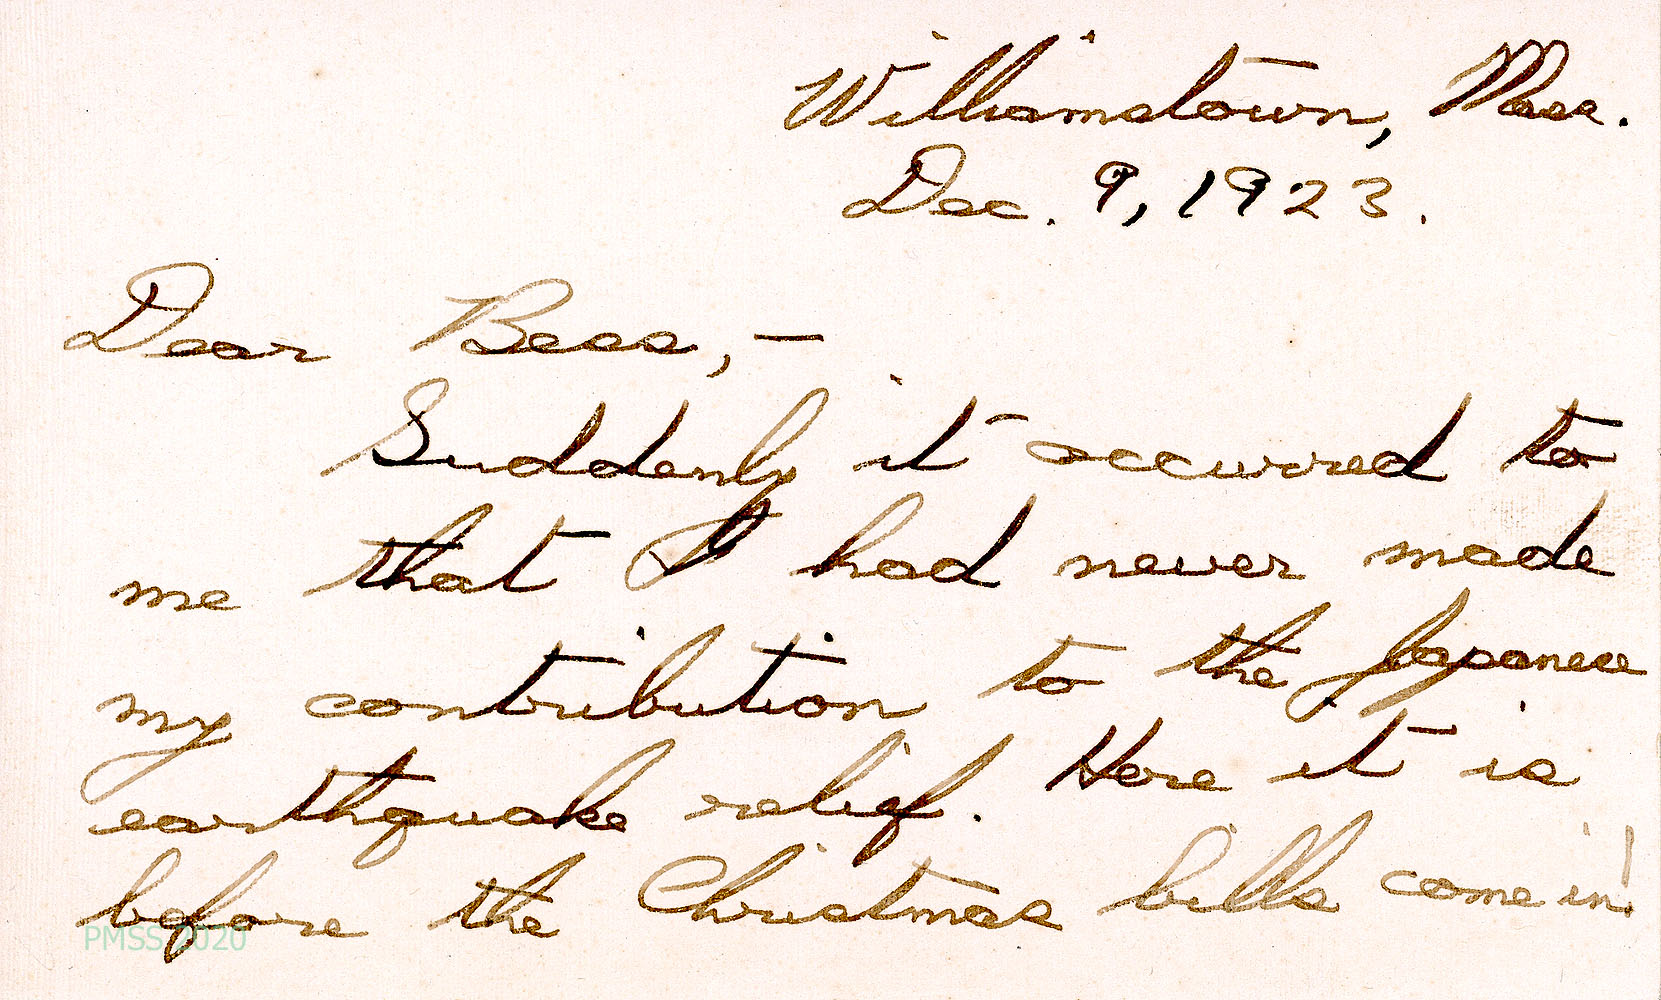 Williamstown, Mass.
Dec. 9, 1923.
Dear Bess,—
Suddenly it occurred to
me that I had never made
my contribution to the Japanese
earthquake relief. Here it is
before the Christmas bills come in!
PMSS 2020